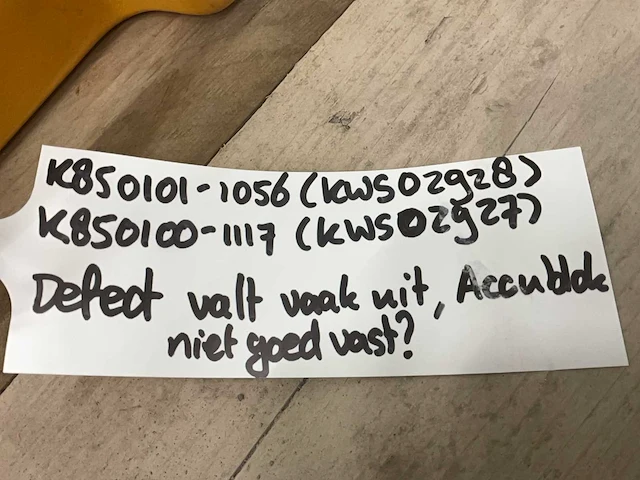 K850101-1056 (KWS02928)
K850100-1117 (KWS02927)
Defect valt vaak uit, Accublok
niet goed vast?